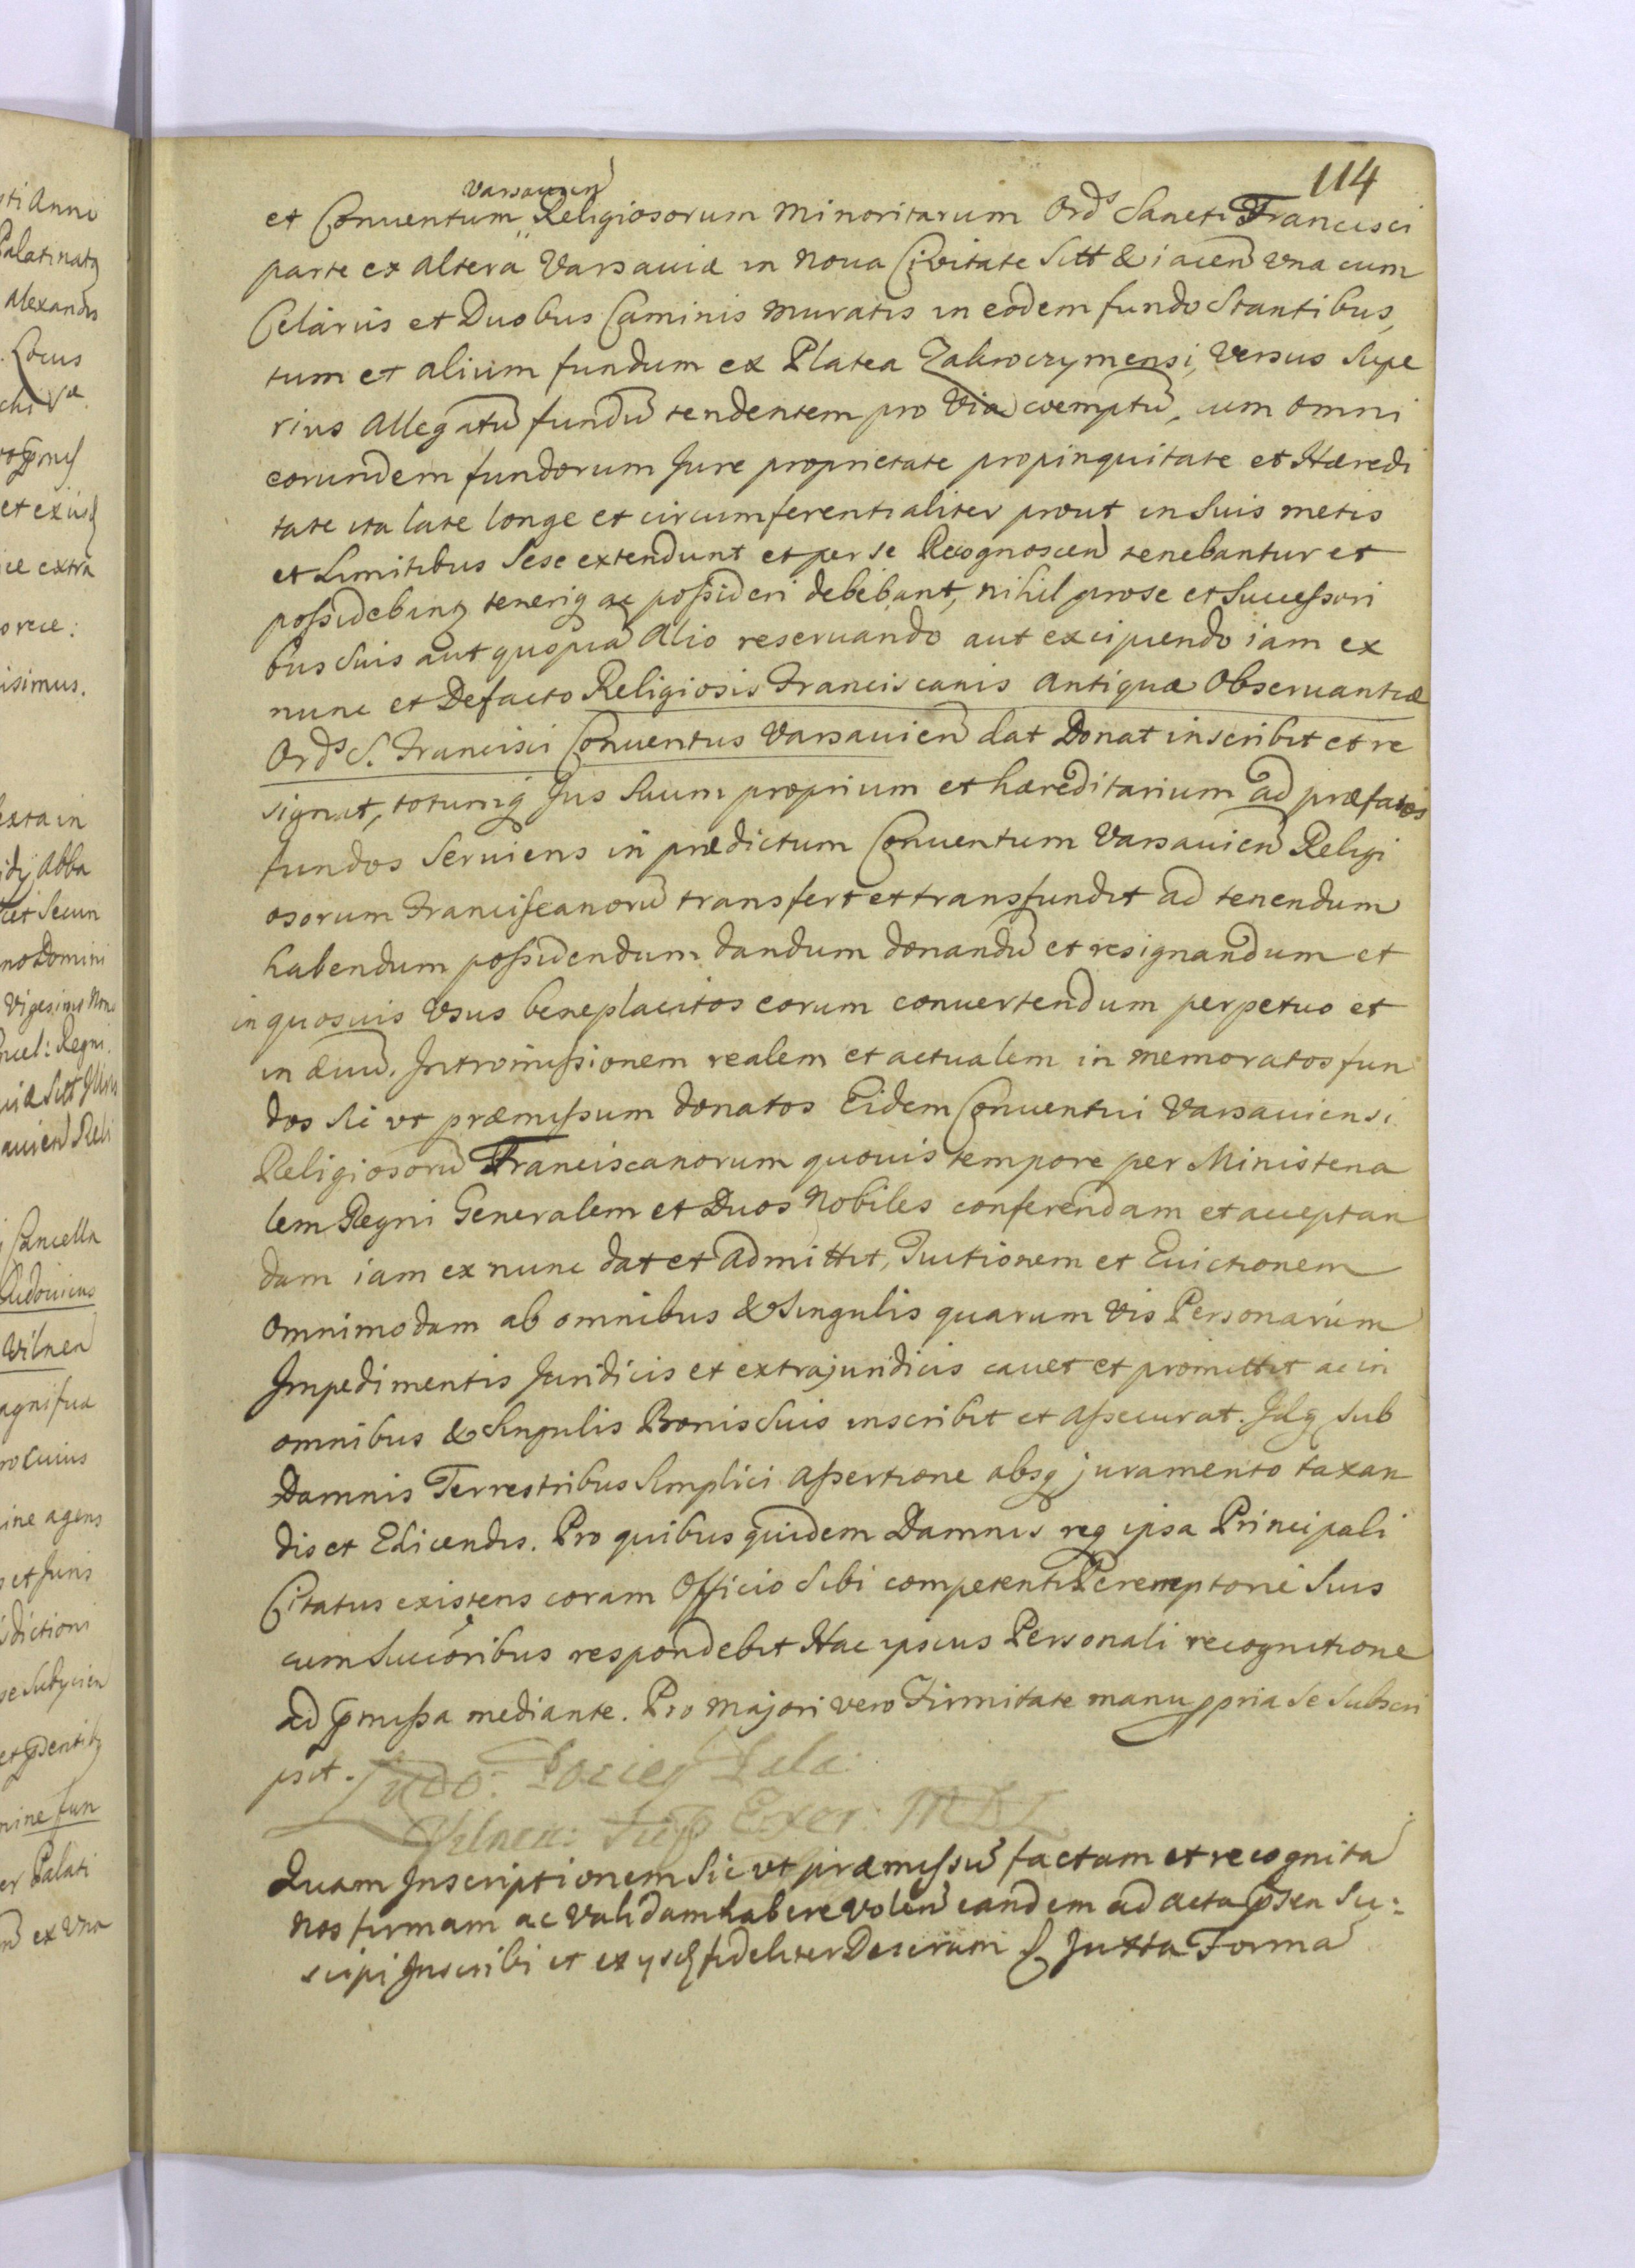 114
Varsauien
et Conuentum Religiosorum Minoritarum Ords Sancti Francisci
parte ex altera Varsauiæ in Noua Civitate Sitt & iacen vna cum
Celariis et Duobus Caminis muratis in eodem fundo Stantibus,
tum et alium fundum ex Platea Zakroczymensi, versus Supe
rius Allegatu fundu tendentem pro via coemptu, cum omni
eorundem fundorum Jure proprietate propinquitate et Hæredi
tate ita late longe et circumferentialiter prout in suis metis
et Limitibus Sese extendunt et per se Recognoscen tenebantur et
possidebantq teneriq ac possideri debebant, nihil pro se et Successori
bus Suis aut quopia alio reseruando aut excipiendo iam ex
nunc et Defacto Religiosis Franciscanis antiquæ Obseruantiæ
Ords S. Francisci Conuentus Varsauien dat Donat inscribit et re
signat, totumq Jus Suum proprium et hæreditarium ad præfatos
fundos Seruiens in prædictum Conuentum Varsauien Religi
osorum Franciscanoru transfert et transfundit ad tenendum
habendum possidendum dandum donandu et resignandum et
in quosuis Vsus beneplacitos eorum conuertendum perpetuo et
in æuu. Intromissionem realem et actualem in memoratos fun
dos Sic vt præmissum donatos Eidem Conuentui Varsauiensi
Religiosoru Franciscanorum quouis tempore per Ministeria
lem Regni Generalem et Duos Nobiles conferendam et acceptan
dam iam ex nunc dat et admittit, Tuitionem et Euictionem
omnimodam ab omnibus & Singulis quarum vis Personarum
Impedimentis Juridicis et extrajuridicis cauet et promittit ac in
omnibus & Singulis Bonis Suis inscribit et assecurat. Idq sub
Damnis Terrestribus Simplici assertione absq juramento taxan
dis et Edicendis. Pro quibus quidem Damnis req ipsa Principali
Citatus existens coram Officio Sibi competenti Peremptorie Suis
cum Succoribus respondebit Hac ipsius Personali recognitione
ad pmissa mediante. Pro majori vero Firmitate manu ppria Se Subscri
psit. Ludo: Pociey Pala:
Vilnen: Sup Exer: MDL
Quam Inscriptionem Sic vt præmissu factam et recognita
Nos firmam ac Validam habere volen eandem ad acta psen Su:
scipi Inscribi et ex ysq fideliter Describi Juxta Forma